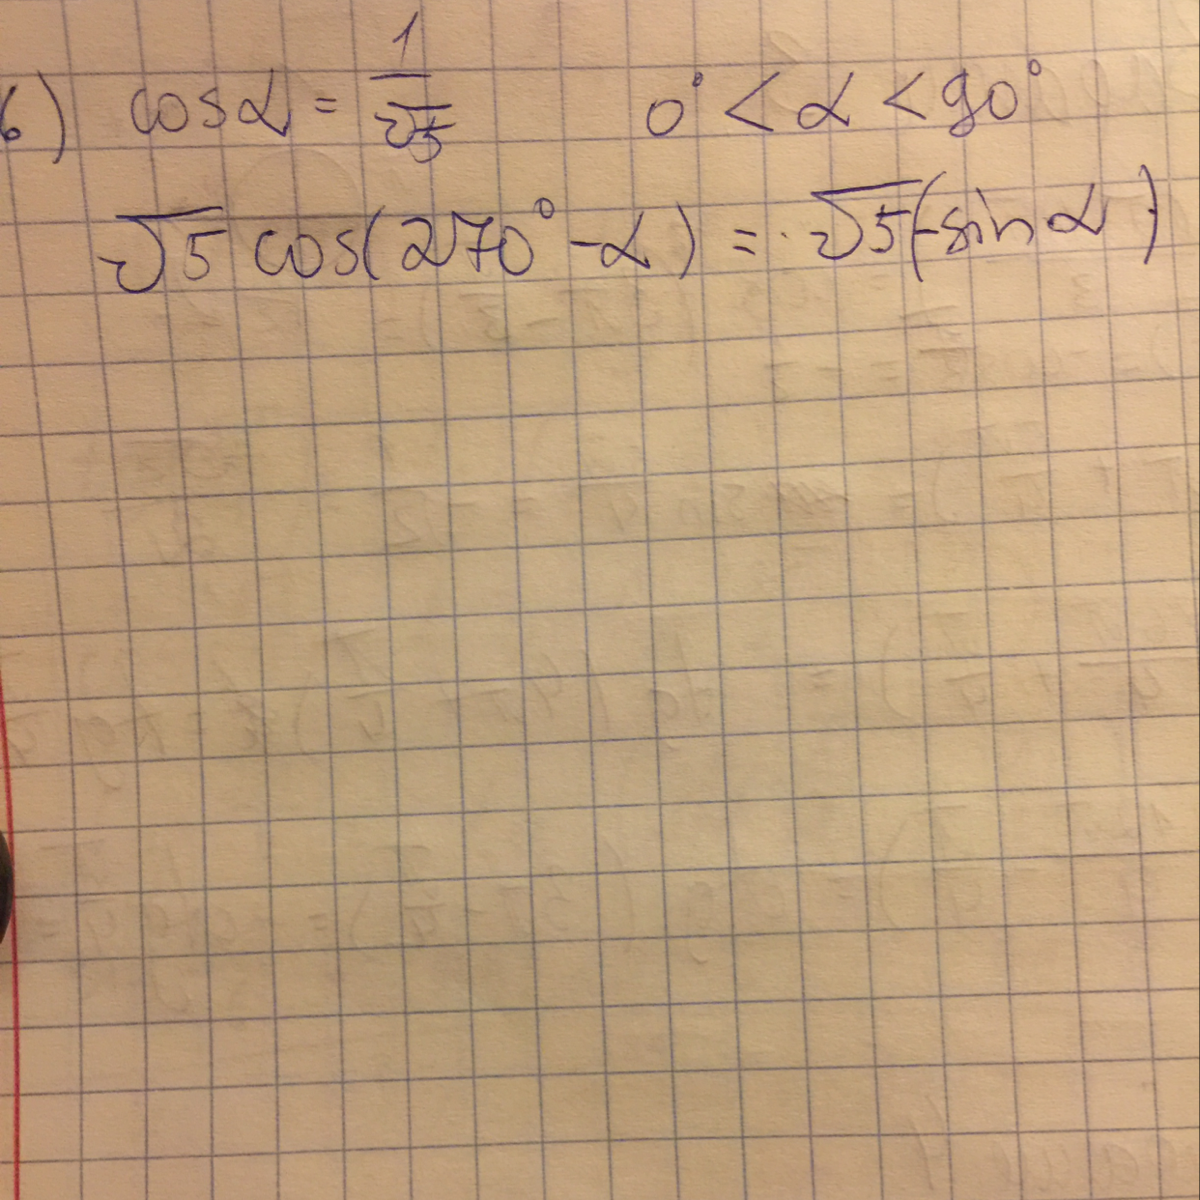 6) cosα = 1/√5 0° < α < 90°
√5 cos(270° - α) = √5(-sin α)